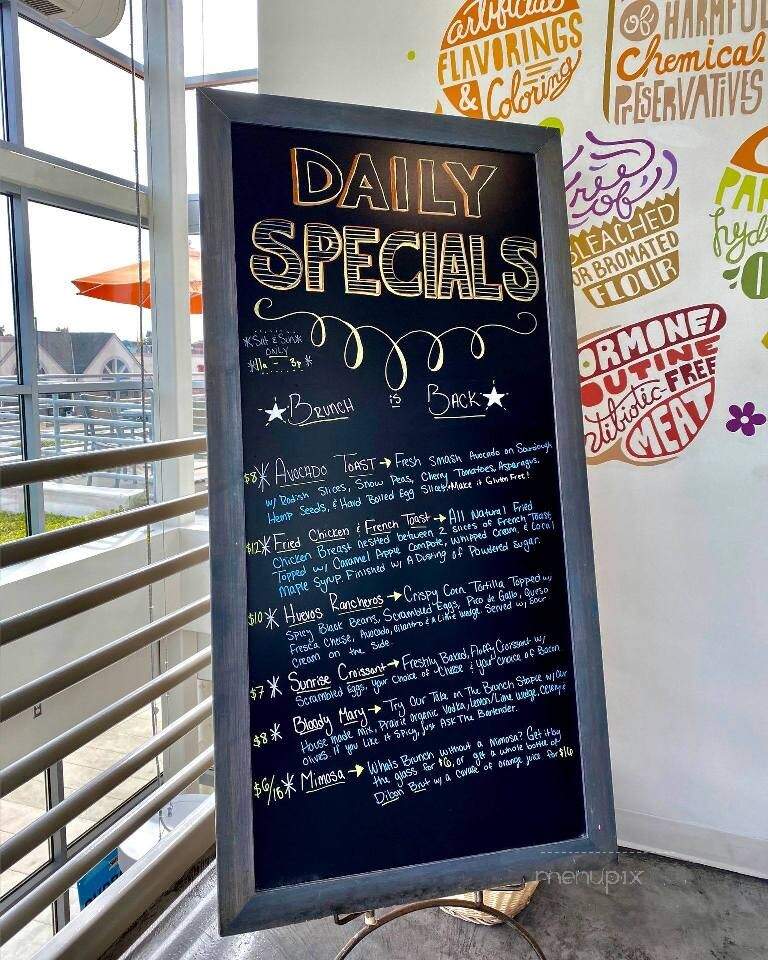 artificial
FLAVORINGS
& Coloring
OF HARMFUL
Chemical
PRESERVATIVES
free
of
BLEACHED
OR BROMATED
FLOUR
HORMONE/
ROUTINE
Antibiotic-FREE
MEAT
DAILY
SPECIALS
*Sat & Sun*
ONLY
*11a - 3p*
★BRUNCH is BACK★
$8* AVOCADO TOAST → Fresh Smash Avocado on Sourdough
w/ Radish Slices, Snow Peas, Cherry Tomatoes, Asparagus,
Hemp Seeds, & Hard Boiled Egg Slices. *Make it Gluten Free!
$12* Fried Chicken & French Toast → All Natural Fried
Chicken Breast nested between 2 slices of French Toast,
Topped w/ Caramel Apple Compote, Whipped Cream, & Local
Maple Syrup. Finished w/ A Dusting of Powdered Sugar.
$10* Huevos Rancheros → Crispy Corn Tortilla Topped w/
Spicy Black Beans, Scrambled Eggs, Pico de Gallo, Queso
Fresca Cheese, Avocado, Cilantro & a Lime Wedge. Served w/ Sour
Cream on the Side.
$7* Sunrise Croissant → Freshly Baked, Fluffy Croissant w/
Scrambled Eggs, your Choice of Cheese & your Choice of Bacon
$8* Bloody Mary → Try Our Take on The Brunch Staple w/ Our
House made mix, Prairie organic Vodka, Lemon/Lime Wedge, Celery &
olives. If you Like it Spicy, Just Ask The Bartender.
$6/16* Mimosa → Whats Brunch without a Mimosa? Get it by
the glass for $6, or get a whole bottle of
Dibon Brut w/ a carafe of orange juice for $16
menupix